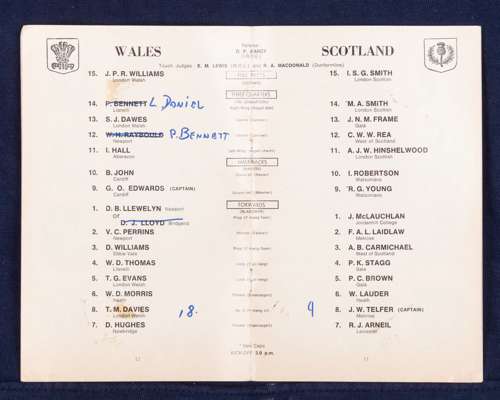 WALES
Referee
D. P. D'ARCY
(I.R.F.U.)
SCOTLAND
Touch Judges : E. M. LEWIS (W.R.U.) and R. A. MACDONALD (Dunfermline)
15. J. P. R. WILLIAMS
London Welsh
FULL BACKS
15. I. S. G. SMITH
London Scottish
14. P. BENNETT L DANIEL
Llanelli
THREEQUARTERS
14. *M. A. SMITH
London Scottish
13. S. J. DAWES
London Welsh
13. J. N. M. FRAME
Gala
12. W. H. RAYBOULD P. BENNETT
Newport
12. C. W. W. REA
West of Scotland
11. I. HALL
Aberavon
11. A. J. W. HINSHELWOOD
London Scottish
HALFBACKS
10. B. JOHN
Cardiff
10. I. ROBERTSON
Watsonians
9. G. O. EDWARDS (CAPTAIN)
Cardiff
9. *R. G. YOUNG
Watsonians
FORWARDS
1. D. B. LLEWELYN Newport
Or
D. J. LLOYD Bridgend
1. J. McLAUCHLAN
Jordanhill College
2. V. C. PERRINS
Newport
2. F. A. L. LAIDLAW
Melrose
3. D. WILLIAMS
Ebbw Vale
3. A. B. CARMICHAEL
West of Scotland
4. W. D. THOMAS
Llanelli
4. P. K. STAGG
Sale
5. T. G. EVANS
London Welsh
5. P. C. BROWN
Gala
6. W. D. MORRIS
Neath
6. W. LAUDER
Neath
8. T. M. DAVIES
London Welsh
18.
9
8. J. W. TELFER (CAPTAIN)
Melrose
7. D. HUGHES
Newbridge
7. R. J. ARNEIL
Leicester
* New Caps
KICK-OFF 3.0 p.m.
12
13